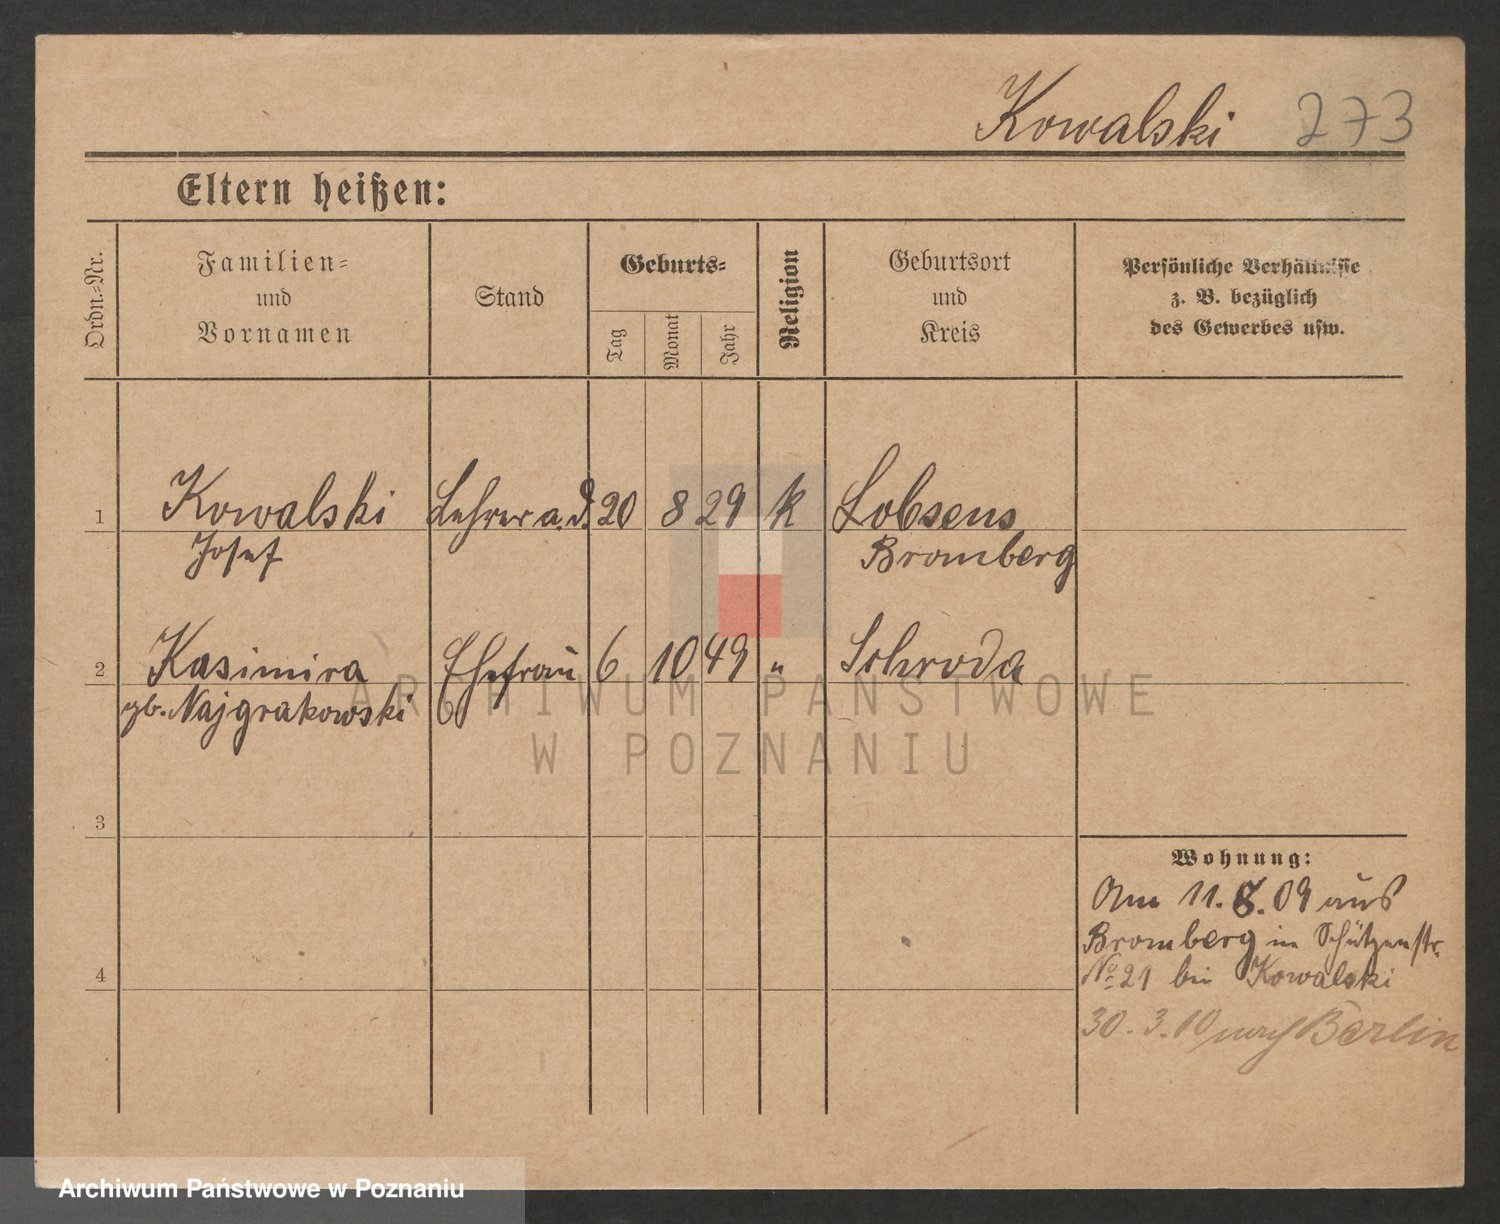 Kowalski 273
Eltern heißen:
Ordn.-Nr.
Familien-
und
Vornamen
Stand
Geburts-
Tag
Monat
Jahr
Religion
Geburtsort
und
Kreis
Persönliche Verhältnisse
z. B. bezüglich
des Gewerbes usw.
1 Kowalski Lehrer a. D. 20 8 29 k Lobsens
Josef Bromberg
2 Kasimira Ehefrau 6 10 49 " Schroda
gb. Najgrakowski
3
4
Wohnung:
Am 11. 8. 09 aus
Bromberg in Schützenstr.
No 21 bei Kowalski
30. 3. 10 nach Berlin
ARCHIWUM PAŃSTWOWE
W POZNANIU
Archiwum Państwowe w Poznaniu